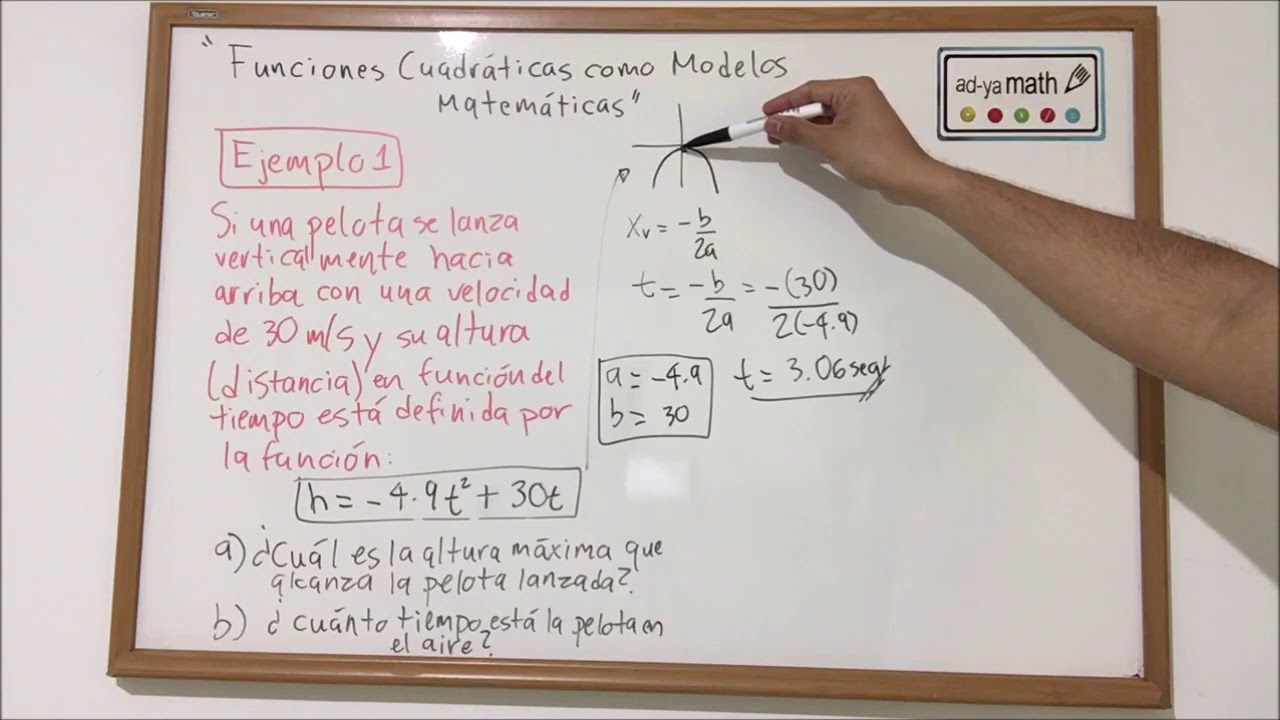 "Funciones Cuadráticas como Modelos
Matemáticas"
ad-ya math
Ejemplo 1
Si una pelota se lanza
verticalmente hacia
arriba con una velocidad
de 30 m/s y su altura
(distancia) en función del
tiempo está definida por
la función:
h = -4.9t² + 30t
a) ¿Cuál es la altura máxima que
alcanza la pelota lanzada?
b) ¿cuánto tiempo está la pelota en
el aire?
Xv = -b/2a
t = -b/2a = -(30)/2(-4.9)
a = -4.9
b = 30
t = 3.06 seg